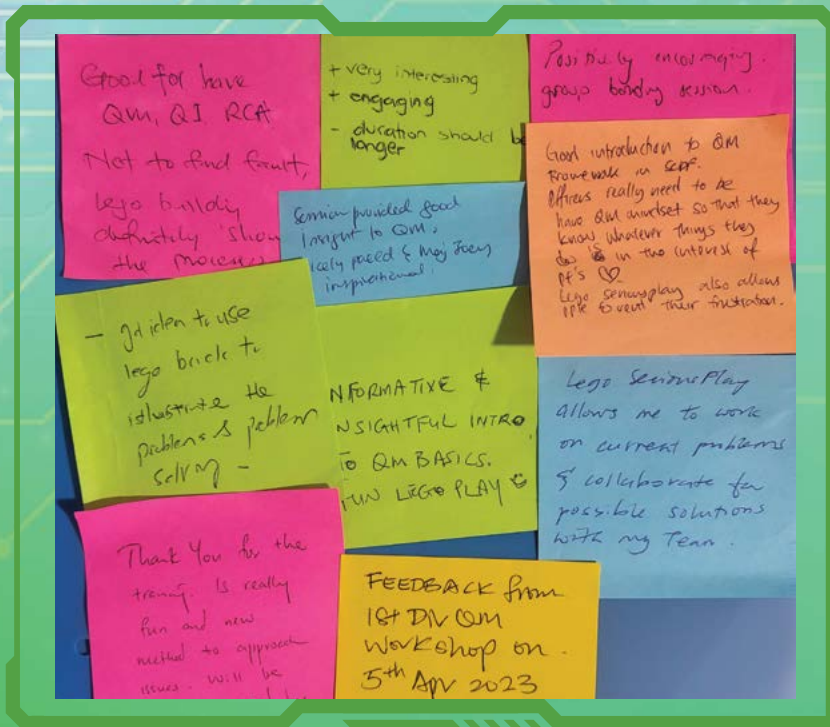 Good for have
QM, QI RCA
Not to find fault,
lego building
definitely 'show
the process
+ very interesting
+ engaging
- duration should be
longer
Positively encouraging.
group bonding session.
Session provided good
Insight to QM,
nicely paced & Maj Joey
inspirational!
Good introduction to QM
Framework in SCDF.
Officers really need to
have QM mindset so that they
know whatever things they
do is in the interest of
pt's ♡.
Lego seriousplay also allows
ppl to vent their frustration.
- gd idea to use
lego brick to
illustrate the
problems & problem
solving -
NFORMATIVE &
NSIGHTFUL INTRO
TO QM BASICS.
FUN LEGO PLAY ☺
Lego Serious Play
allows me to work
on current problems
& collaborate for
possible solutions
with my Team.
Thank You for the
training. Is really
fun and new
method to approach
issues. Will be
FEEDBACK from
1st DIV QM
Workshop on.
5th Apr 2023